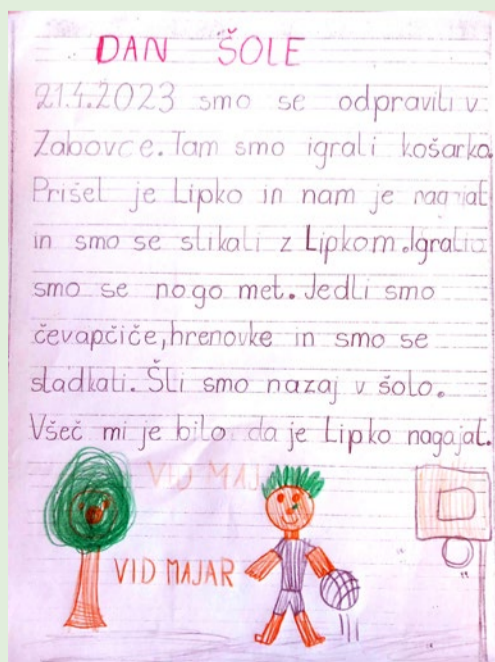 DAN ŠOLE
21.4.2023 smo se odpravili v
Zabovce. Tam smo igrali košarko.
Prišel je Lipko in nam je nagajal
in smo se slikali z Lipkom. Igrali
smo se nogo met. Jedli smo
čevapčiče, hrenovke in smo se
sladkali. Šli smo nazaj v šolo.
Všeč mi je bilo da je Lipko nagajal.
VID MAJAR
VID MAJAR